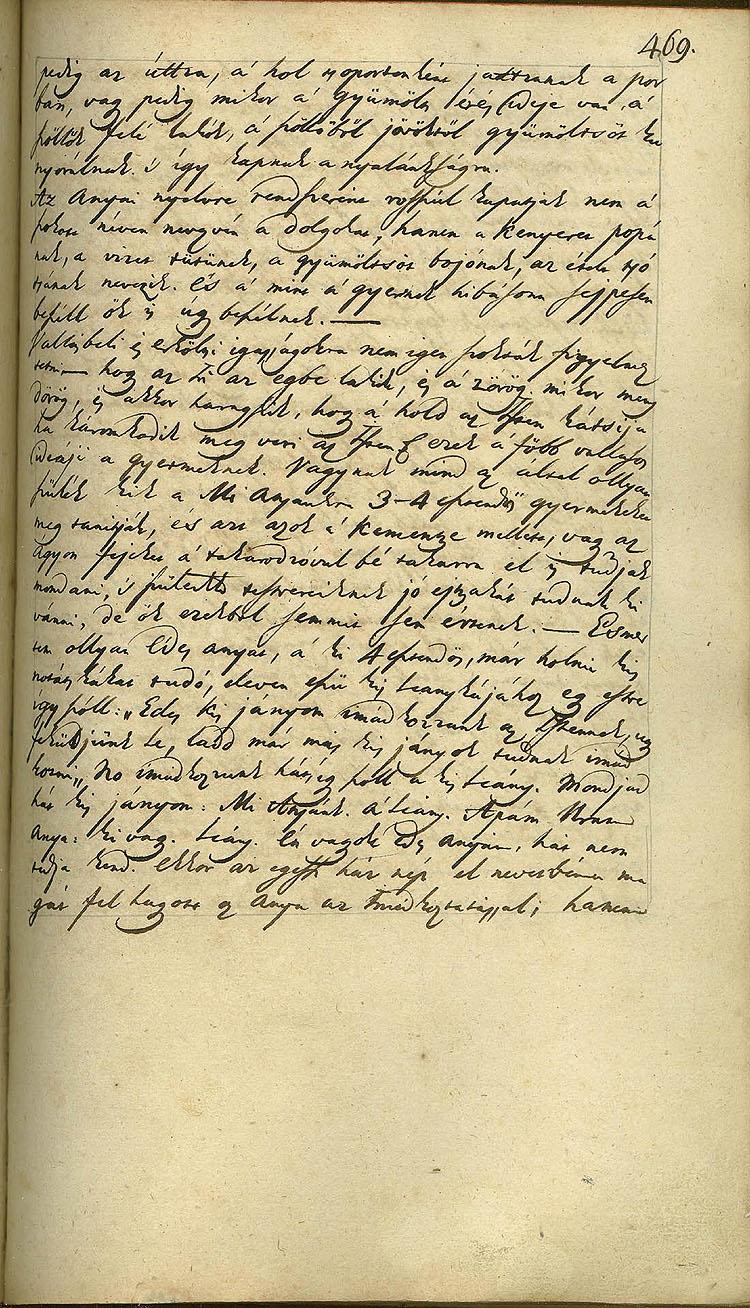 469.
pedig az úttra, á hol tsoportonként jádtzanak a por
ban, vagy pedig mikor á gyümölts érés ideje van, á
szöllők felé lakók, á szöllőből jövőktöl gyümöltsöt ku
nyorálnak. 's így kapnak a nyalánkságra.
Az Anyai nyelvre rendszerint rosszúl kapatják nem á
szokott néven nevezvén a dolgokat, hanem a Kenyeret papá
nak, a vizet tsütsünek, a gyümöltsöt bojónak, az
nevezik. És á mint á gyermek hibásonn sejpesen
beszéll ők is úgy beszélnek. —
Vallásbeli és erköltsi igazságokra nem igen szokták figyelmez
tetni — hogy az Isten az egbe lakik, és á zörög mikor meny
dörög, és akkor haragszik, hogy á hold az Isten
ha káromkodik meg veri az Isten ezek á főbb vallásos
ideáji a gyermeknek. Vagynak mind az által ollyan
szülék kik a Mi Atyánkra 3–4 esztendős gyermekeket
meg tanitják, és azt azok á Kementze mellett, vagy az
ágyon fejeket á takarodzóval bé takarva el is tudják
mondani, 's szüleiktől testvereiknek jó ejtzakát tudnak ki
vánni, de ők ezekből semmit sem értenek. — Esmer
tem ollyan Édes anyát, á ki 4 esztendős, már holmi kis
nótátskákat tudó, eleven eszű kis leánykájához egy estve
így szóll: „Edes kis jányom imádkozzunk az Istennek, úgy
feküdjünk le, ladd már más kis jányok tudnak imád
kozni„ No imádkozzunk hát, így szóll a kis leány. Mondjad
hát kis jányom: Mi Atyánk. A leány. Apám Uram
Anya: ki vagy. Leány. Én vagyok Édes anyám, hát nem
tudja kend. Ekkor az egész ház nép el nevetvén ma
gát fel hagyott az Anya az Imádkoztatással; hanem